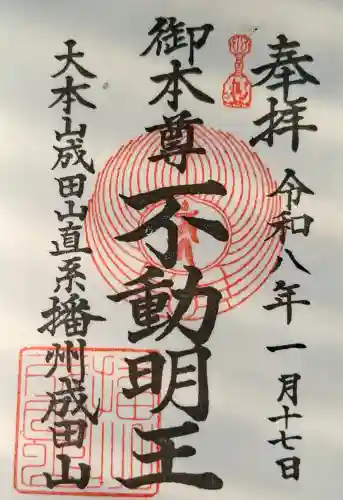 奉拝 令和八年 一月十七日
御本尊 不動明王
大本山成田山直系播州成田山